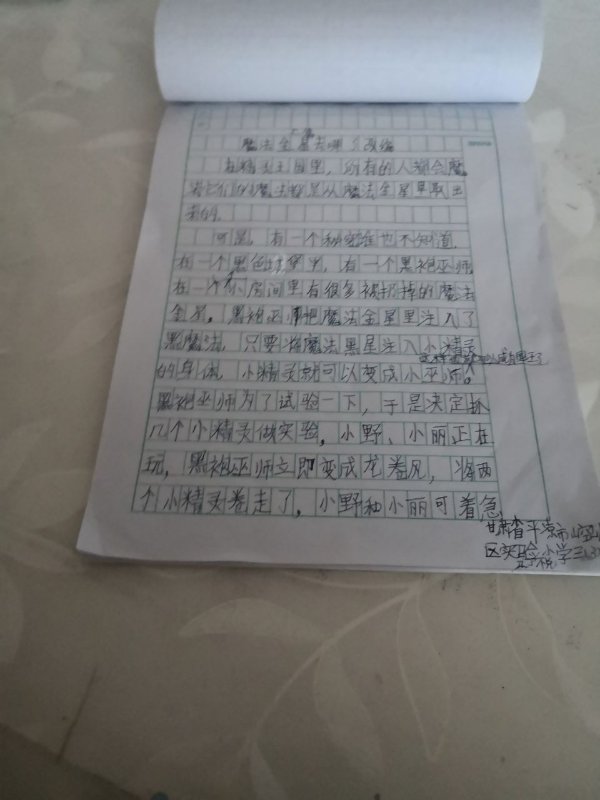 魔法金星去哪了改编
在精灵王国里，所有的人都会魔
法它们的魔法都是从魔法金星里取出
来的。
可是，有一个秘密谁也不知道，
在一个黑色城堡里，有一个黑袍巫师，
在一个小房间里有很多被扔掉的魔法
金星。黑袍巫师把魔法金星里注入了
黑魔法，只要将魔法黑星注入小精灵
的身体，小精灵就可以变成小巫师。
黑袍巫师为了试验一下，于是决定抓
几个小精灵做实验。小野、小丽正在
玩，黑袍巫师立即变成龙卷风，将两
个小精灵卷走了。小野和小丽可着急
甘肃省平凉市
区实验小学三